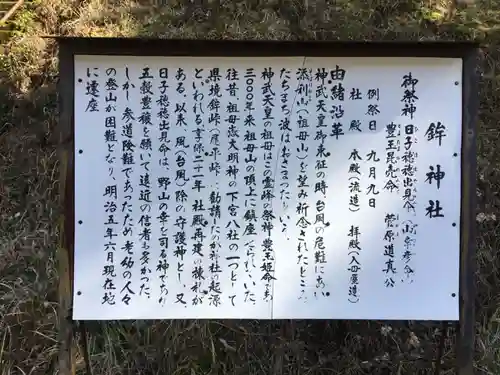 鉾神社
御祭神
日子穂穂出見命（山幸彦命）
豊玉毘売命　菅原道真公
例祭日　九月九日
社殿　本殿（流造）　拝殿（入母屋造）
由緒沿革
神武天皇御東征の時台風の危難にあい
添利山（祖母山）を望み祈念されたところ
たちまち波はおさまったという。
神武天皇の祖母はこの霊峰の祭神豊玉姫命であり
三〇〇〇年来祖母山の頂上に鎮座せられていた
往昔祖母岳大明神の下宮八社の一つとして
県境鉾峠（尾平峠）に勧請したのが神社の起源
といわれる。享保二十一年社殿再建の棟札が
ある。以来、風（台風）除の守護神とし、又
日子穂穂出見命は、野山の幸を司る神であり
五穀豊穣を願いて遠近の信者も多かった。
しかし、参道険難であったため老幼の人々
の登山が困難となり、明治五年六月現在地
に遷座